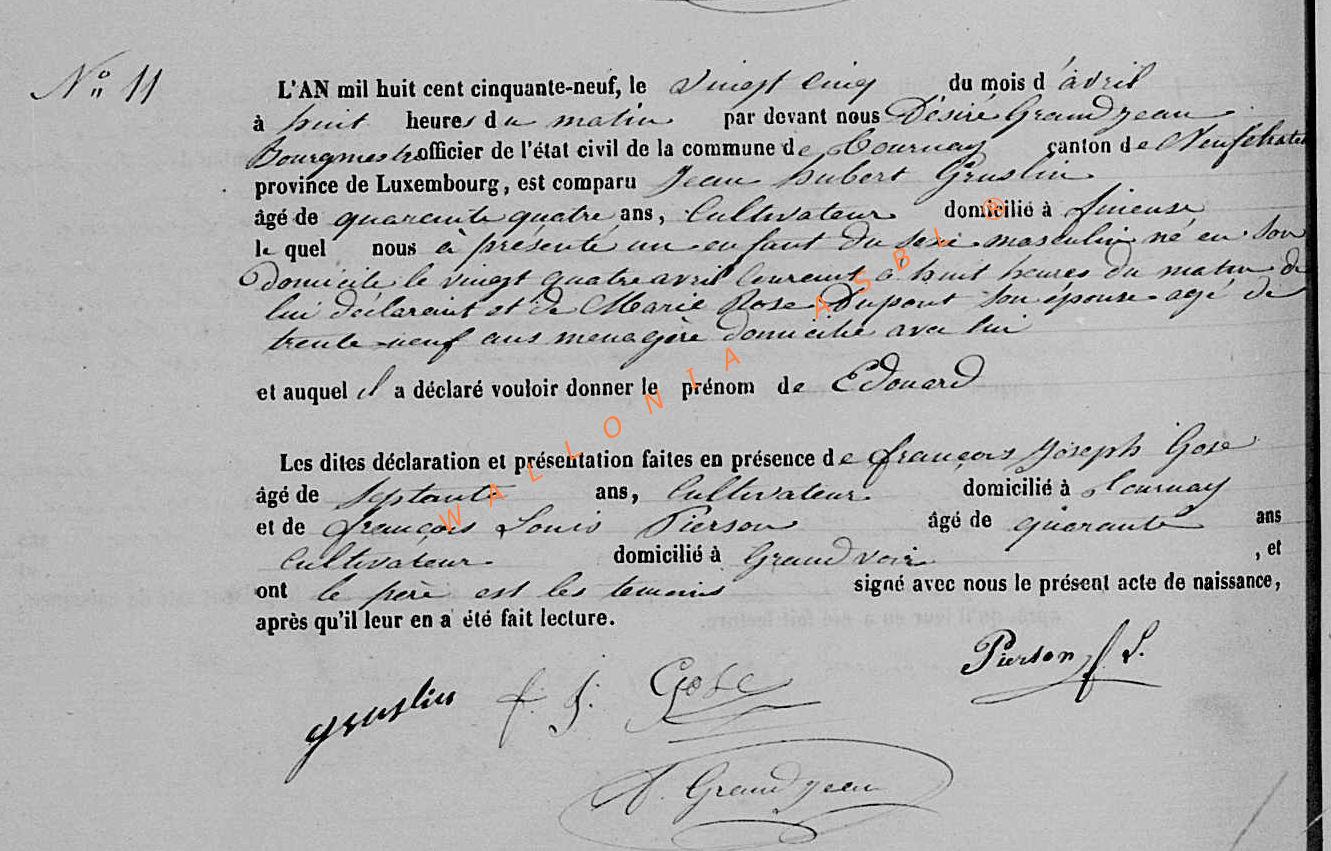 N° 11
L'AN mil huit cent cinquante-neuf, le vingt cinq du mois d'avril
à huit heures du matin par devant nous Désiré Grandjean
Bourgmestre officier de l'état civil de la commune de Tournay canton de Neufchateau
province de Luxembourg, est comparu Jean hubert Gruslin
âgé de quarante quatre ans, Cultivateur domicilié à
le quel nous à présenté un enfant du sexe masculin né en son
domicile le vingt quatre avril courant a huit heures du matin de
lui déclarant et de Marie Rose Dupont son épouse agé de
trente neuf ans menagère domicilié avec lui
et auquel il a déclaré vouloir donner le prénom de Edouard
Les dites déclaration et présentation faites en présence de françois Joseph Gose
âgé de septante ans, Cultivateur domicilié à Tournay
et de françois Louis Pierson âgé de quarante ans
Cultivateur domicilié à Grandvoir, et
ont le père est les temoins signé avec nous le présent acte de naissance,
après qu'il leur en a été fait lecture.
Pierson f. L.
Gruslin f. j. Gose
D. Grandjean
WALLONIA ASBL ®